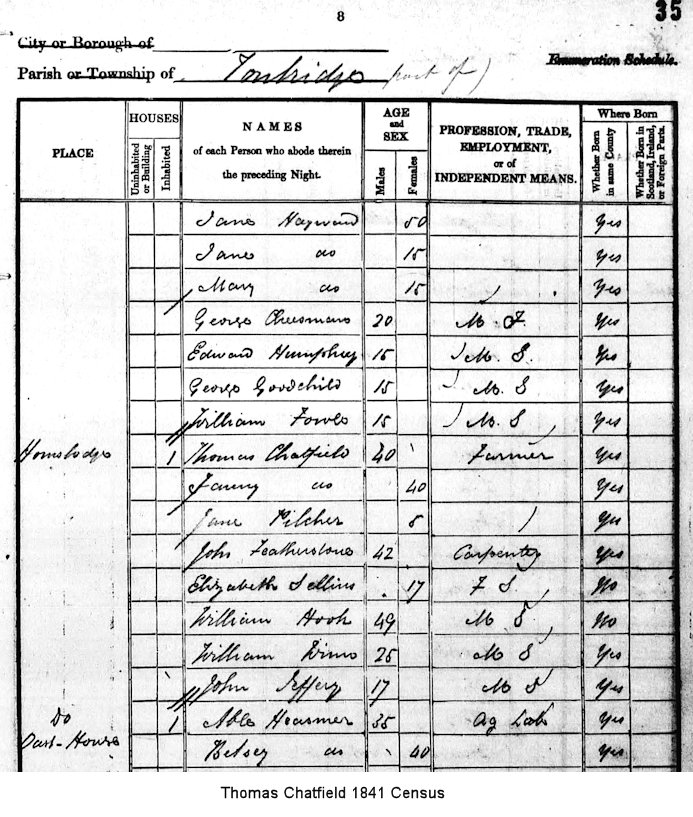 8
35
City or Borough of
Parish or Township of Tonbridge (part of)
Enumeration Schedule.
PLACE
HOUSES
Uninhabited or Building
Inhabited
NAMES
of each Person who abode therein
the preceding Night.
AGE
and
SEX
Males
Females
PROFESSION, TRADE,
EMPLOYMENT,
or of
INDEPENDENT MEANS.
Where Born
Whether Born in same County
Whether Born in Scotland, Ireland, or Foreign Parts.
Jane Hayward 50 Yes
Jane do 15 Yes
Mary do 15 Yes
George Cheesman 20 M. S. Yes
Edward Humphrey 15 M. S. Yes
George Goodchild 15 M. S Yes
William Fowle 15 M. S Yes
1 Thomas Chatfield 40 Farmer Yes
Fanny do 40 Yes
Jane Pilcher 5 Yes
John Featherstone 42 Carpenter Yes
Elizabeth 17 F S No
William Hook 49 M S No
William 25 M S Yes
John Jeffery 17 M S Yes
Do 1 Able 35 Ag Lab Yes
Oast-House Betsey do 40 Yes
Thomas Chatfield 1841 Census